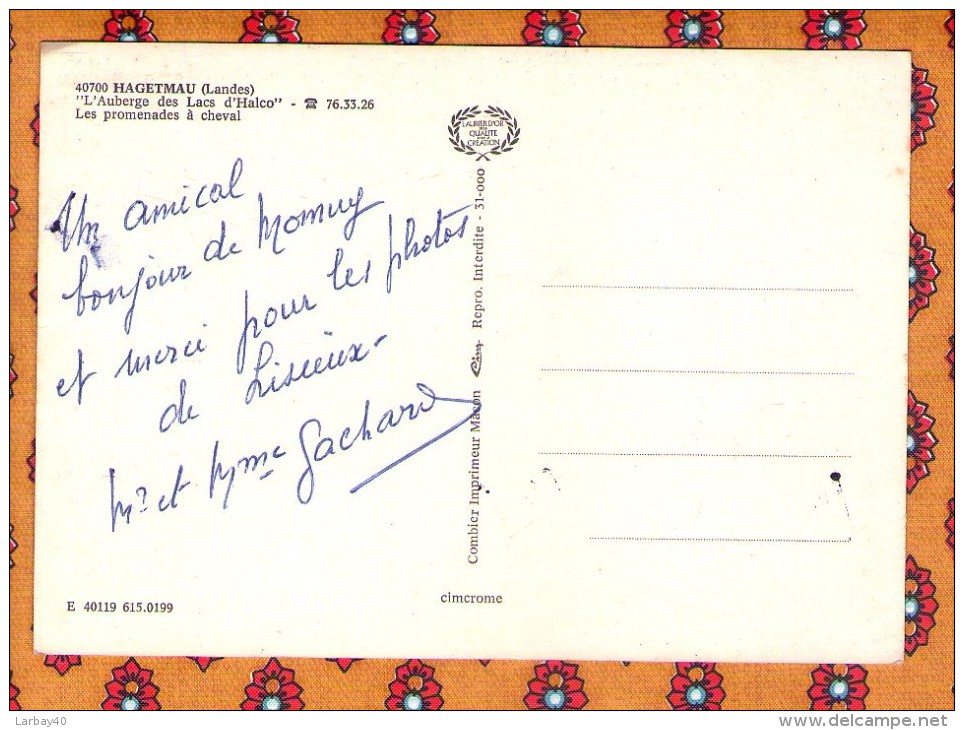 40700 HAGETMAU (Landes)
"L'Auberge des Lacs d'Halco" - ☎ 76.33.26
Les promenades à cheval
LAURIER D'OR
DE LA
QUALITE
DANS LA
CREATION
Un amical
bonjour de Momuy
et merci pour les photos
de Lisieux-
Mr et Mme Gachard
Combier Imprimeur Macon Cim Repro. Interdite - 31-000
cimcrome
E 40119 615.0199
Larbay40
www.delcampe.net